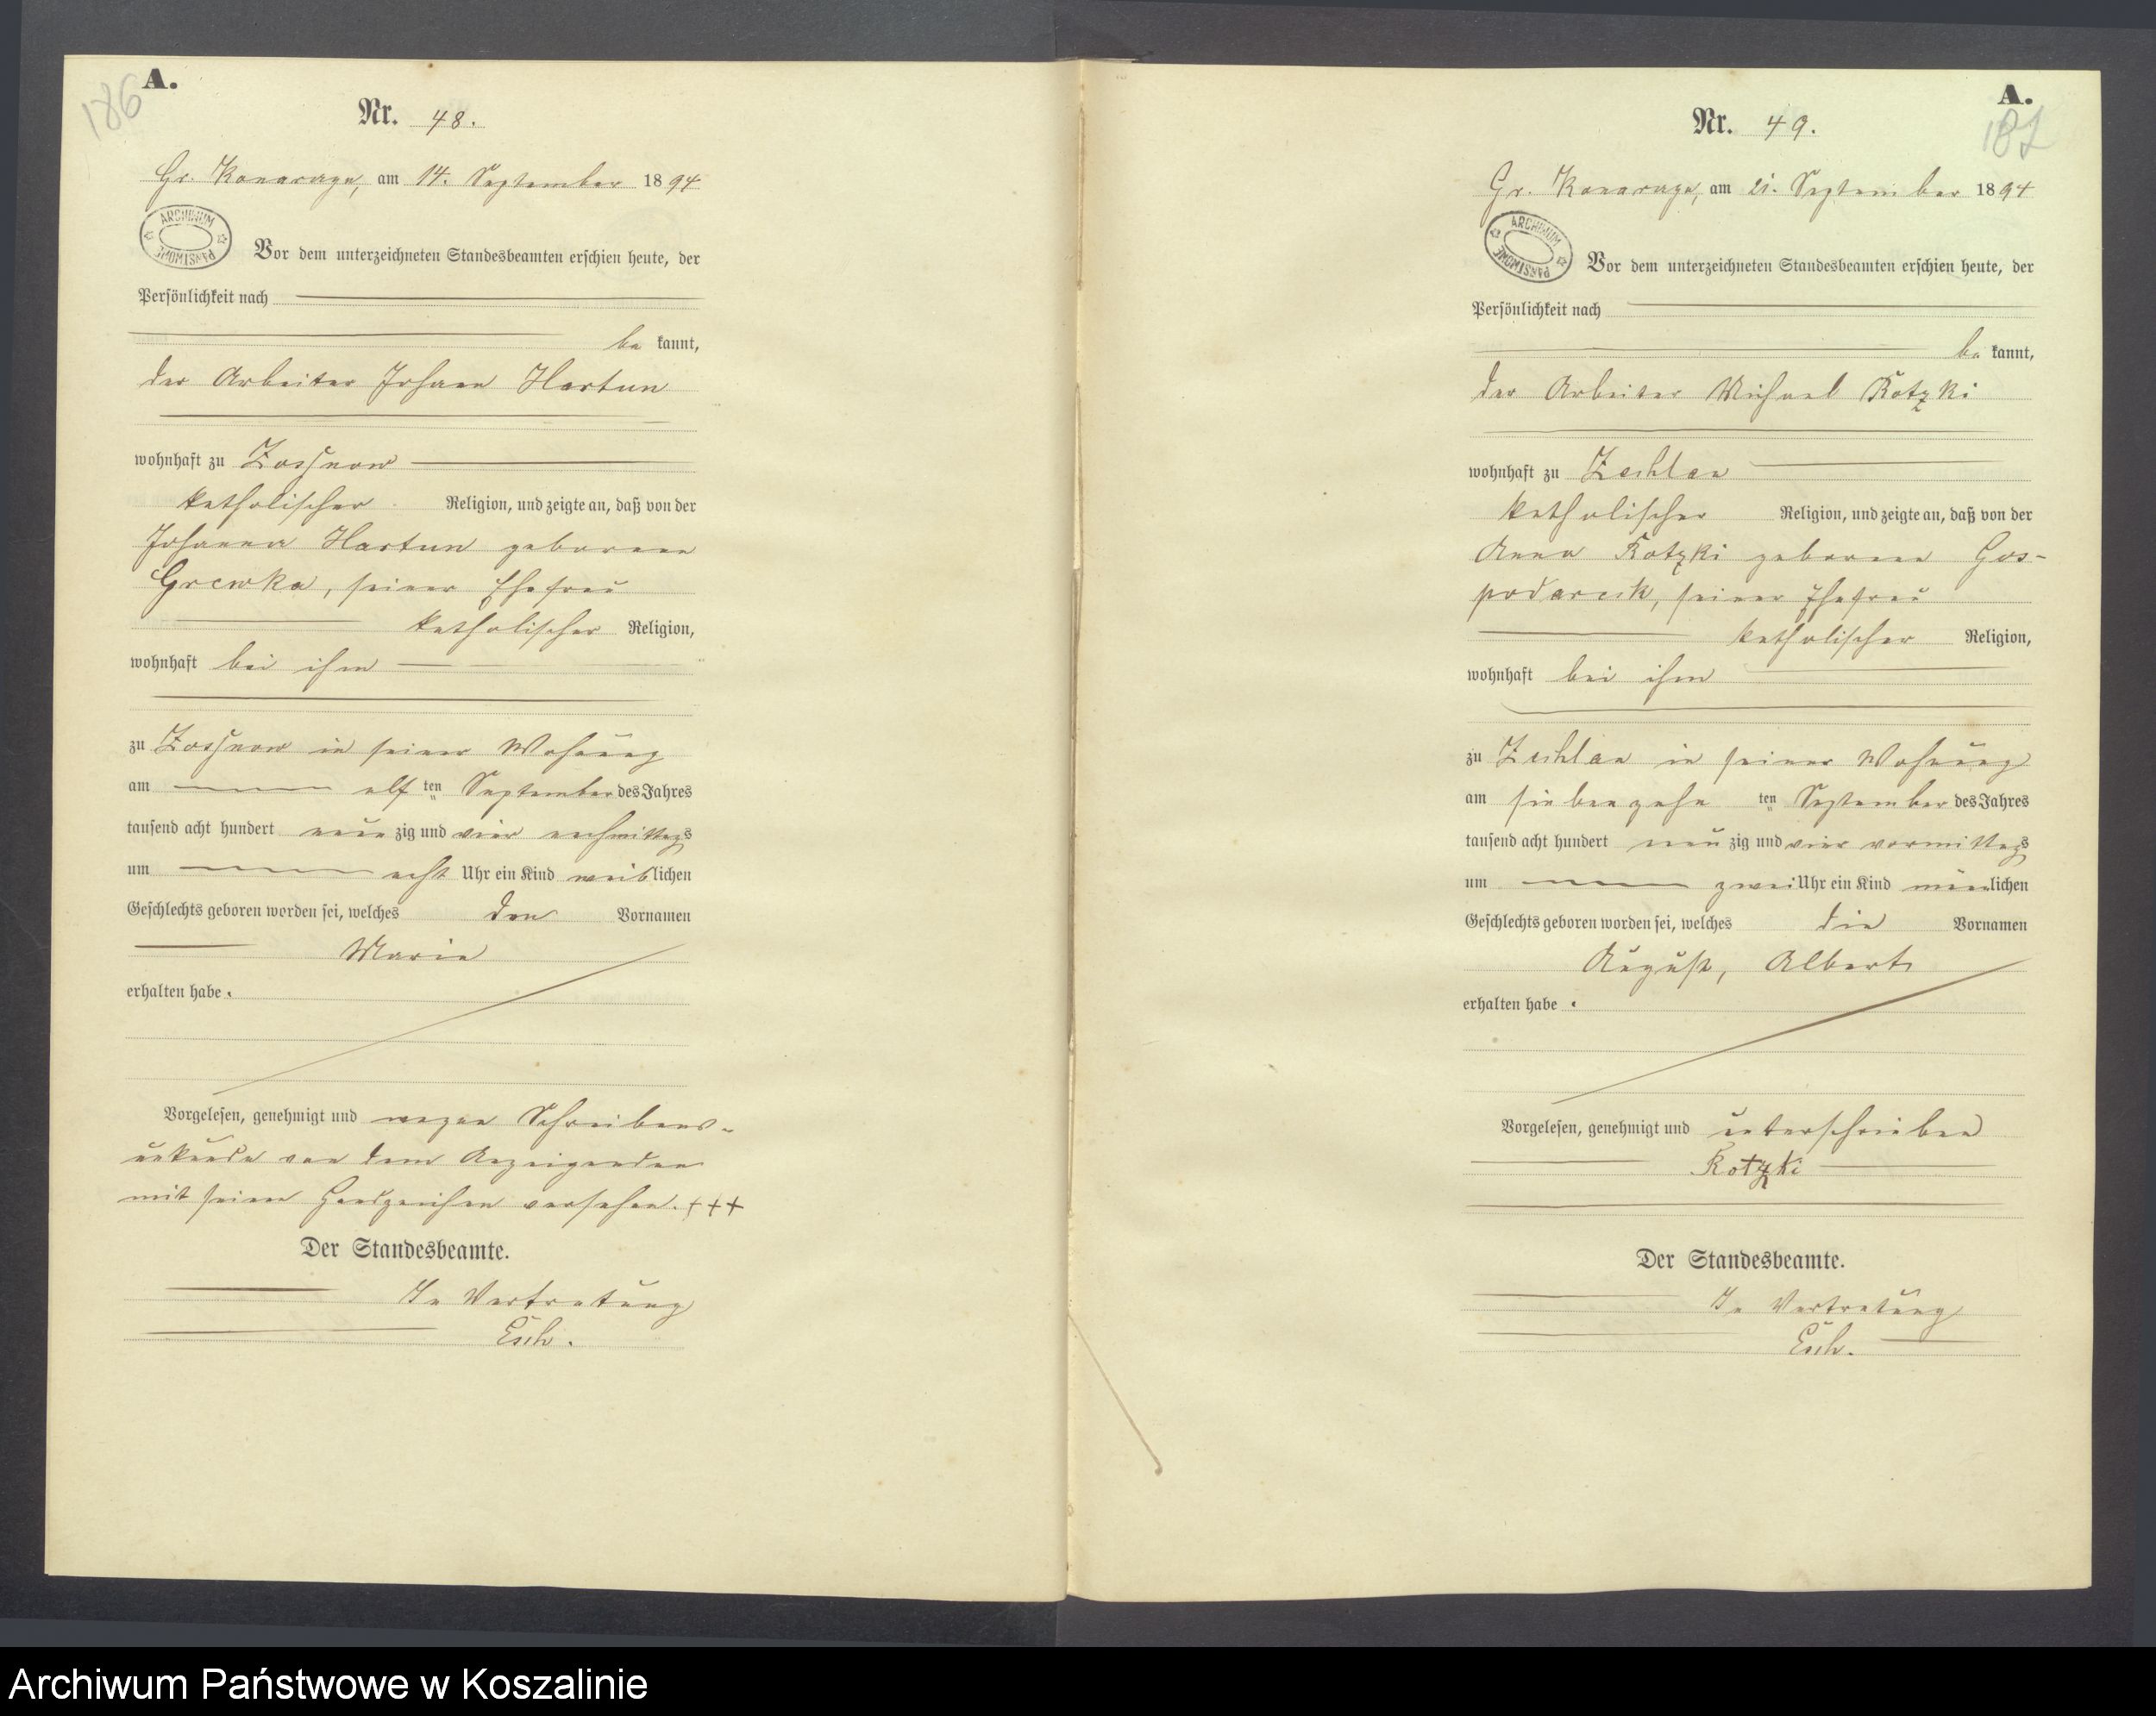 A.
186
Nr. 48.
Gr. Konarczyn, am 14. September 1894
ARCHIWUM PAŃSTWOWE
Vor dem unterzeichneten Standesbeamten erschien heute, der
Persönlichkeit nach
be kannt,
der Arbeiter Johann Hartun
wohnhaft zu Zossnow
katholischer Religion, und zeigte an, daß von der
Johanna Hartun geborene
Grewka, seiner Ehefrau
katholischer Religion,
wohnhaft bei ihm
zu Zossnow in seiner Wohnung
am elf ten September des Jahres
tausend acht hundert neun zig und vier nachmittags
um acht Uhr ein Kind weiblichen
Geschlechts geboren worden sei, welches den Vornamen
Marie
erhalten habe.
Vorgelesen, genehmigt und wegen Schreibens-
unkunde von dem Anzeigenden
mit seinen Handzeichen versehen. +++
Der Standesbeamte.
In Vertretung
Esch.
A.
187
Nr. 49.
Gr. Konarczyn, am 21. September 1894
ARCHIWUM PAŃSTWOWE
Vor dem unterzeichneten Standesbeamten erschien heute, der
Persönlichkeit nach
be kannt,
der Arbeiter Michael Kotzki
wohnhaft zu Zechlau
katholischer Religion, und zeigte an, daß von der
Anna Kotzki geborene Gos-
podarek, seiner Ehefrau
katholischer Religion,
wohnhaft bei ihm
zu Zechlau in seiner Wohnung
am siebenzehn ten September des Jahres
tausend acht hundert neun zig und vier vormittags
um zwei Uhr ein Kind männlichen
Geschlechts geboren worden sei, welches die Vornamen
August, Albert
erhalten habe.
Vorgelesen, genehmigt und unterschrieben
Kotzki
Der Standesbeamte.
In Vertretung
Esch.
Archiwum Państwowe w Koszalinie